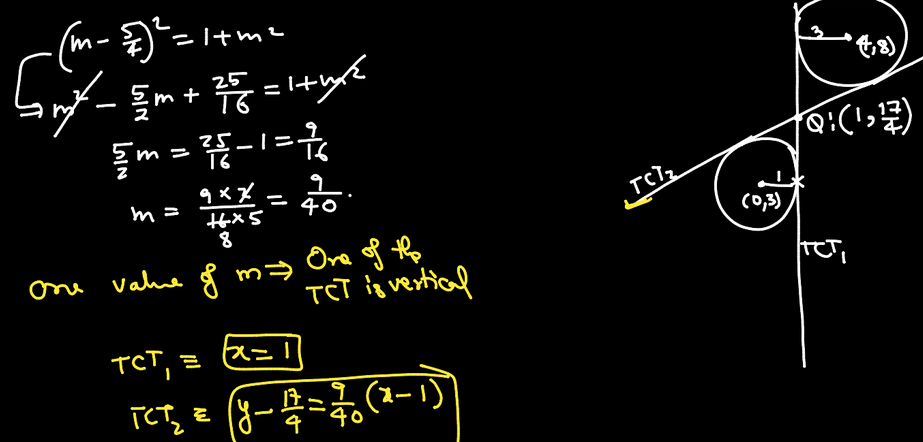 (m - 5/4)² = 1 + m²
⇒ m² - 5/2 m + 25/16 = 1 + m²
5/2 m = 25/16 - 1 = 9/16
m = 9 × 2 / 16 × 5 = 9/40
8
One value of m ⇒ One of the
TCT is vertical
TCT₁ ≡ x = 1
TCT₂ ≡ y - 17/4 = 9/40 (x - 1)
3
(4,8)
Q:(1, 17/4)
TCT₂
1
(0,3)
TCT₁